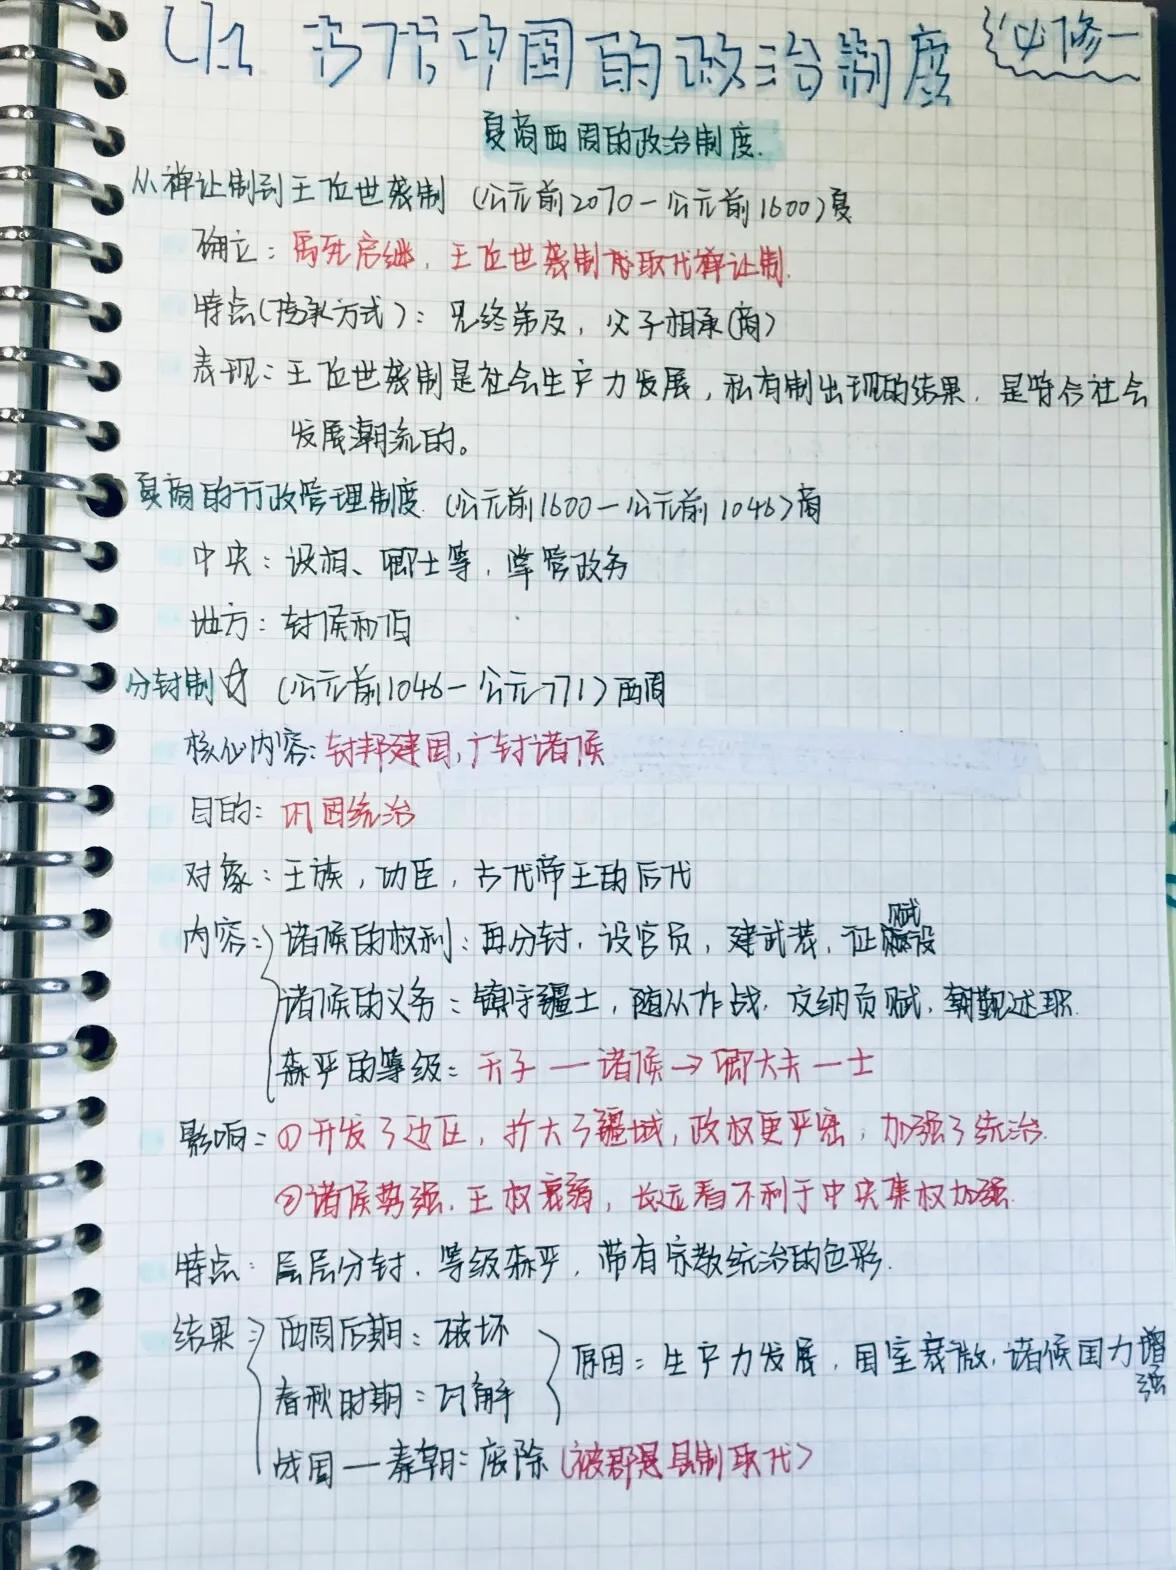 U1 古代中国的政治制度 必修一
夏商西周的政治制度.
从禅让制到王位世袭制 (公元前2070-公元前1600)夏
确立: 禹死启继, 王位世袭制 取代禅让制.
特点(传承方式): 兄终弟及, 父子相承(商)
表现: 王位世袭制是社会生产力发展, 私有制出现的结果, 是符合社会
发展潮流的。
夏商的行政管理制度. (公元前1600-公元前1046)商
中央: 设相、卿士等, 掌管政务
地方: 封侯和伯
分封制☆ (公元前1046-公元771)西周
核心内容: 封邦建国, 广封诸侯
目的: 巩固统治
对象: 王族, 功臣, 古代帝王的后代
内容: 诸侯的权利: 再分封, 设官员, 建武装, 征赋役
诸侯的义务: 镇守疆土, 随从作战, 交纳贡赋, 朝觐述职.
森严的等级: 天子—诸侯→卿大夫—士
影响: ①开发了边区, 扩大了疆域, 政权更严密, 加强了统治.
②诸侯势强, 王权衰弱, 长远看不利于中央集权加强.
特点: 层层分封, 等级森严, 带有宗教统治的色彩.
结果: 西周后期: 破坏
春秋时期: 瓦解
原因: 生产力发展, 王室衰微, 诸侯国力增强
战国—秦朝: 废除(被郡县制取代)